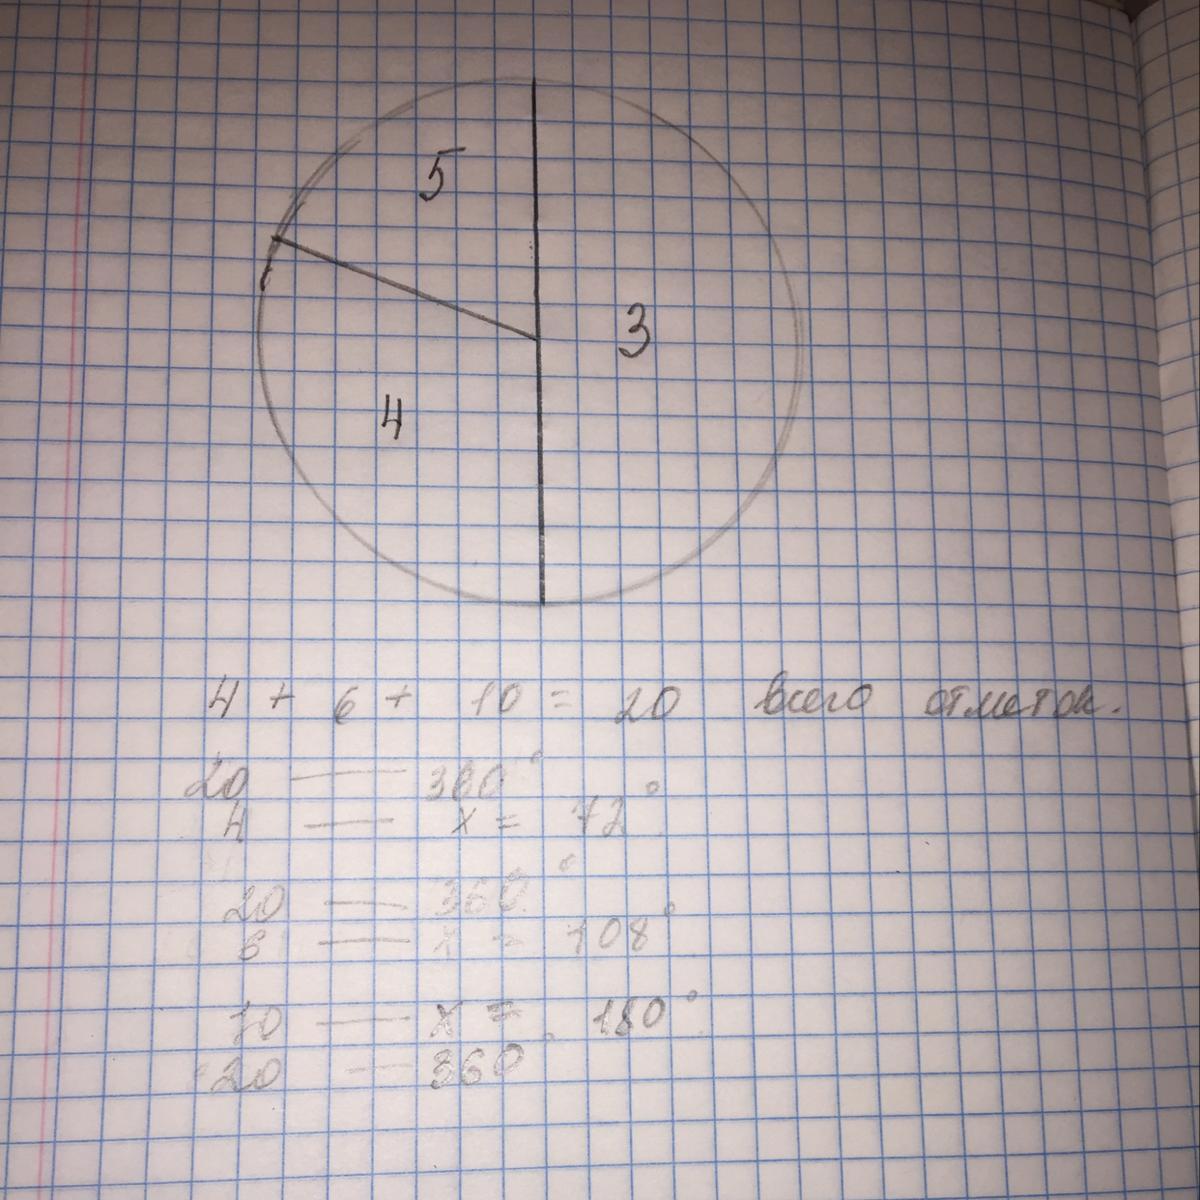 5
3
4
4 + 6 + 10 = 20 всего отметок.
20 — 360°
4 — x = 72°
20 — 360°
6 — x = 108°
10 — x = 180°
20 — 360°